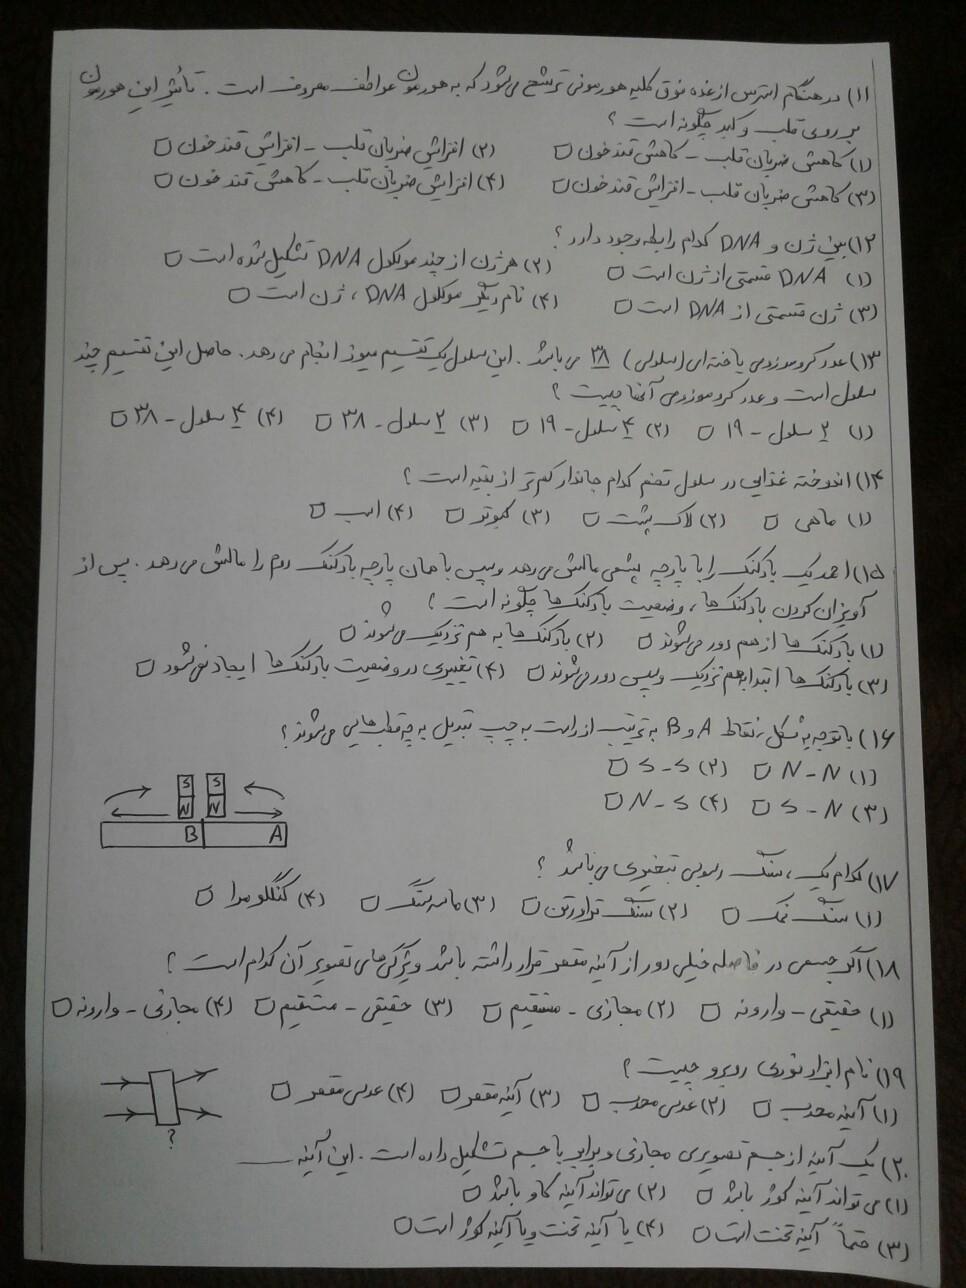 ۱۱) در هنگام استرس از غده فوق کلیه هورمونی ترشح می‌شود که به هورمون عواطف معروف است. تأثیر این هورمون
بر روی قلب و کبد چگونه است؟
۱) کاهش ضربان قلب - کاهش قند خون □ ۲) افزایش ضربان قلب - افزایش قند خون □
۳) کاهش ضربان قلب - افزایش قند خون □ ۴) افزایش ضربان قلب - کاهش قند خون □
۱۲) بین ژن و DNA کدام رابطه وجود دارد؟
۱) DNA قسمتی از ژن است □ ۲) هر ژن از چند مولکول DNA تشکیل شده است □
۳) ژن قسمتی از DNA است □ ۴) نام دیگر مولکول DNA، ژن است □
۱۳) عدد کروموزومی یاخته‌ای (سلولی) ۳۸ می باشد. این سلول یک تقسیم میوز انجام می دهد. حاصل این تقسیم چند
سلول است و عدد کروموزومی آنها چیست؟
۱) ۲ سلول - ۱۹ □ ۲) ۴ سلول - ۱۹ □ ۳) ۲ سلول - ۳۸ □ ۴) ۴ سلول - ۳۸ □
۱۴) اندوخته غذایی در سلول تخم کدام جاندار کم تر از بقیه است؟
۱) ماهی □ ۲) لاک پشت □ ۳) کبوتر □ ۴) اسب □
۱۵) احمد یک بادکنک را با پارچه پشمی مالش می دهد و سپس با همان پارچه بادکنک دوم را مالش می دهد. پس از
آویزان کردن بادکنک‌ها، وضعیت بادکنک‌ها چگونه است؟
۱) بادکنک‌ها از هم دور می‌شوند □ ۲) بادکنک‌ها به هم نزدیک می‌شوند □
۳) بادکنک‌ها ابتدا به هم نزدیک و سپس دور می‌شوند □ ۴) تغییری در وضعیت بادکنک‌ها ایجاد نمی‌شود □
۱۶) با توجه به شکل، نقاط A و B به ترتیب از راست به چپ تبدیل به چه قطب‌هایی می‌شوند؟
۱) N-N □ ۲) S-S □
۳) S-N □ ۴) N-S □
S S
N N
B A
۱۷) کدام یک، سنگ رسوبی تبخیری می باشد؟
۱) سنگ نمک □ ۲) سنگ تراورتن □ ۳) ماسه سنگ □ ۴) کنگلومرا □
۱۸) اگر جسمی در فاصله خیلی دور از آینه مقعر قرار داشته باشد ویژگی‌های تصویر آن کدام است؟
۱) حقیقی - وارونه □ ۲) مجازی - مستقیم □ ۳) حقیقی - مستقیم □ ۴) مجازی - وارونه □
۱۹) نام ابزار نوری روبرو چیست؟
۱) آینه محدب □ ۲) عدسی محدب □ ۳) آینه مقعر □ ۴) عدسی مقعر □
?
۲۰) یک آینه از جسم تصویری مجازی و برابر با جسم تشکیل داده است. این آینه ____
۱) می تواند آینه کوژ باشد □ ۲) می تواند آینه کاو باشد □
۳) حتماً آینه تخت است □ ۴) یا آینه تخت و یا آینه کوژ است □